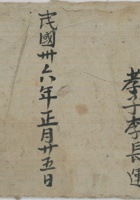 孝子李長
民國卅六年正月廿五日